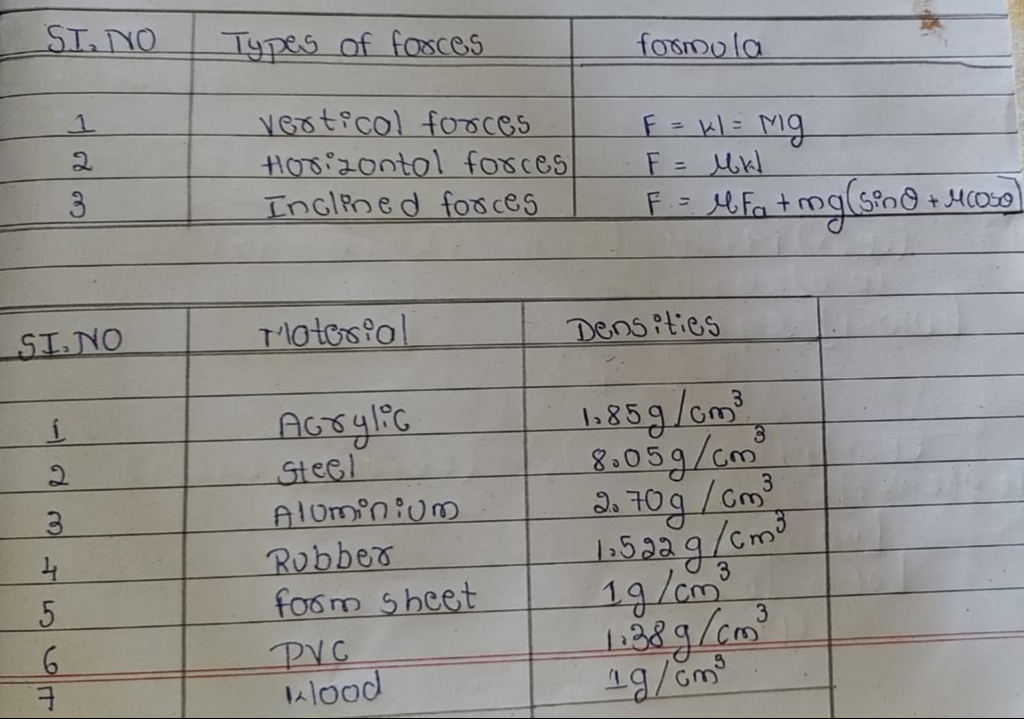 SI.NO Types of forces formula
1 vertical forces F = W = Mg
2 Horizontal forces F = μW
3 Inclined forces F = μFa + mg(sinθ + μcosθ)
SI.NO Material Densities
1 Acrylic 1.85g/cm³
2 Steel 8.05g/cm³
3 Aluminium 2.70g/cm³
4 Rubber 1.522g/cm³
5 foam sheet 1g/cm³
6 PVC 1.38g/cm³
7 Wood 1g/cm³